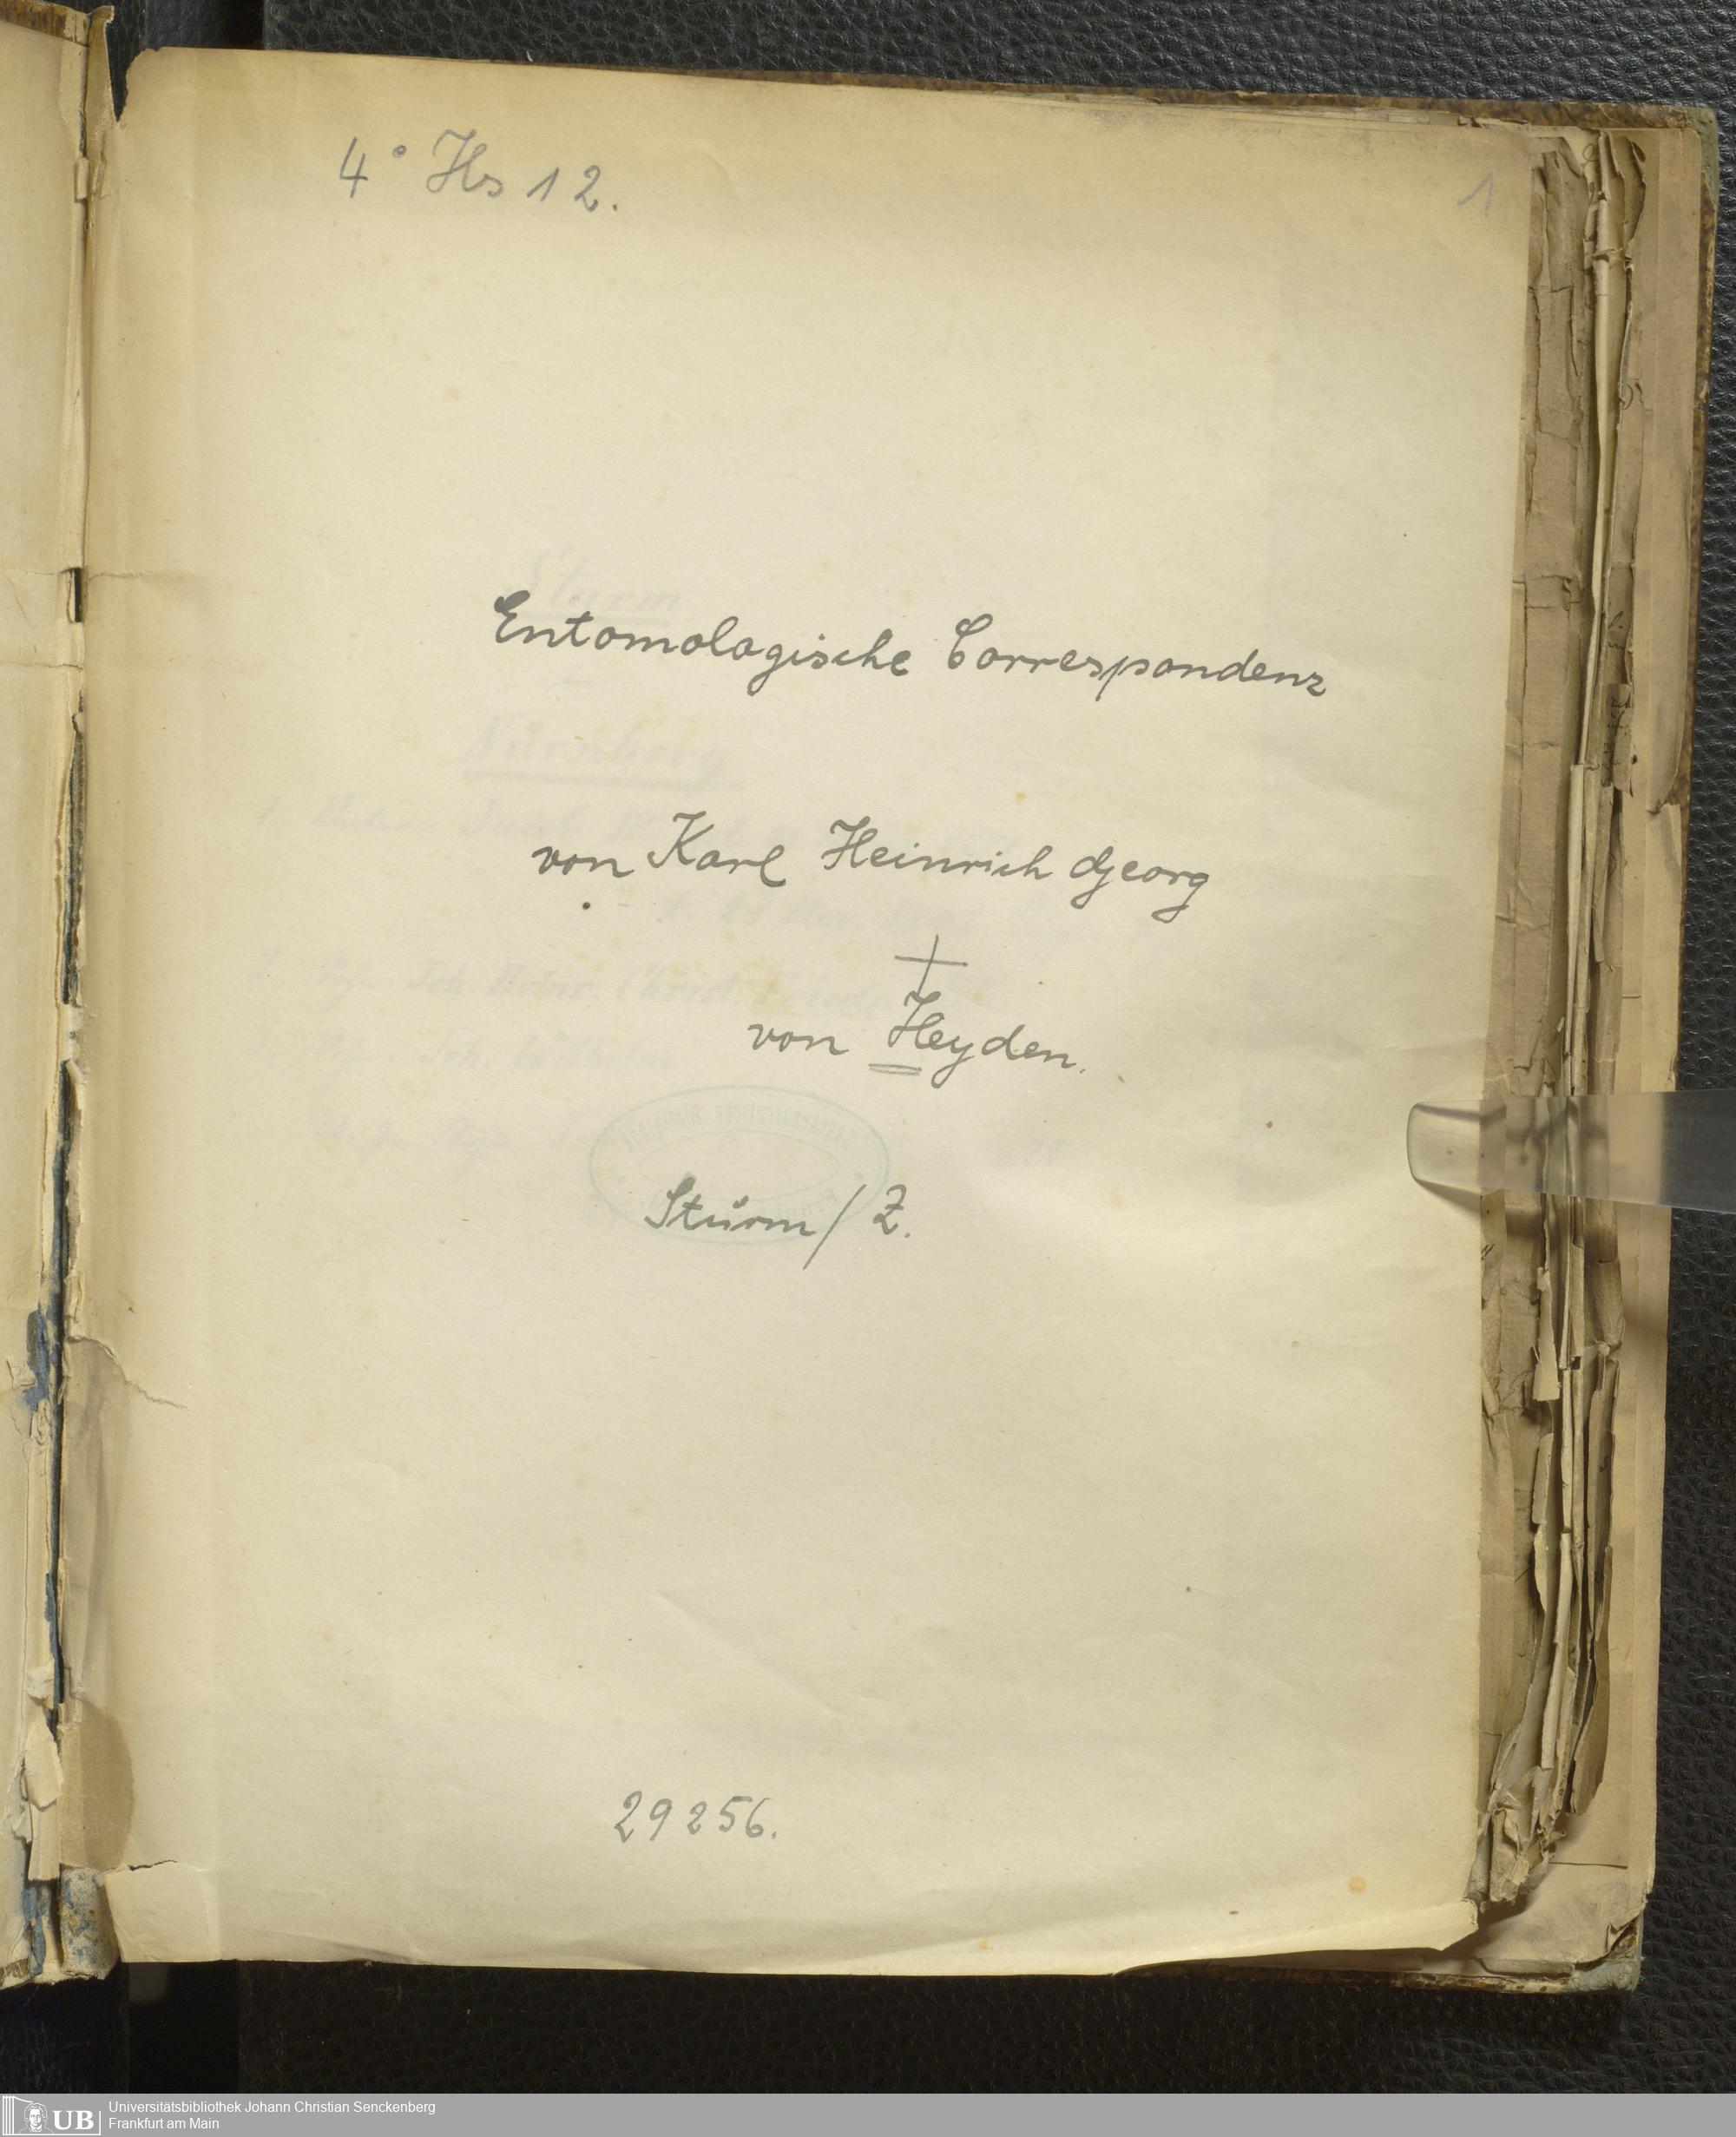 4° Hs 12.
1
Entomologische Correspondenz
von Karl Heinrich Georg
von Heyden.
Sturm / Z.
29256.
UB
Universitätsbibliothek Johann Christian Senckenberg
Frankfurt am Main